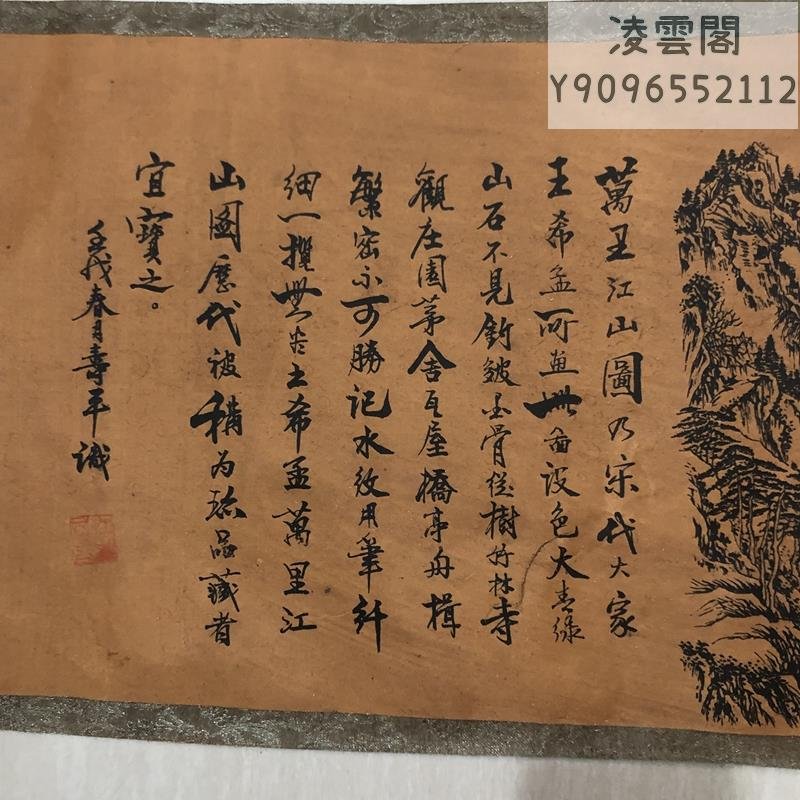 凌雲閣
Y9096552112
萬里江山圖乃宋代大家
王希孟所畫無畐设色大青绿
山石不見釣皴金骨從樹竹林寺
觀庄園茅舍瓦屋橋亭舟楫
繁密不可勝记水紋用筆纤
细一攬無
王希孟萬里江
山图歷代被稱为珍品藏者
宜寶之。
壬戌春月壽平識